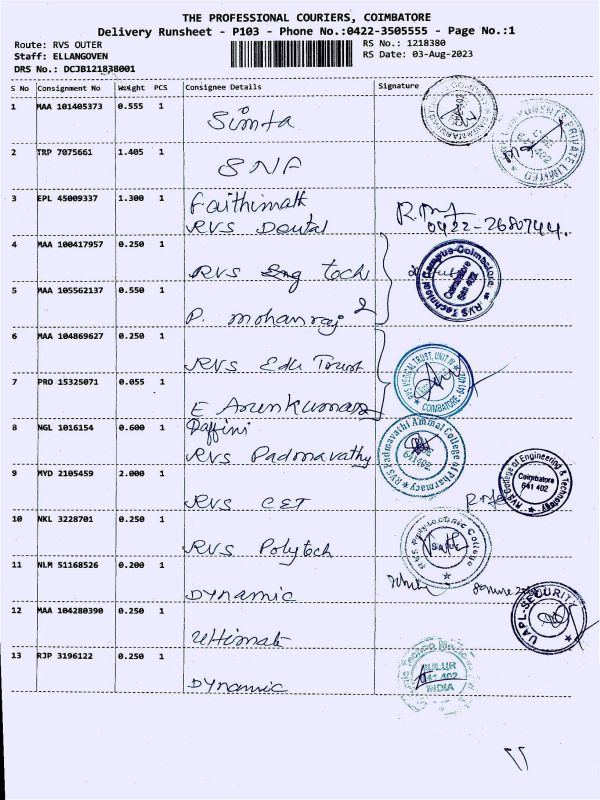 THE PROFESSIONAL COURIERS, COIMBATORE
Delivery Runsheet - P103 - Phone No.:0422-3505555 - Page No.:1
Route: RVS OUTER
RS No.: 1218380
Staff: ELLANGOVEN
RS Date: 03-Aug-2023
DRS No.: DCJB121838001
S No Consignment No Weight PCS Consignee Details Signature
1 MAA 101405373 0.555 1 Simta
2 TRP 7075661 1.405 1 SNF
3 EPL 45009337 1.300 1 Faithimath
RVS Dental
0422-2680744.
4 MAA 100417957 0.250 1 RVS Eng tech
RVS Technical Campus-Coimbatore
Coimbatore
641 402
5 MAA 105562137 0.550 1 P. mohanraj
6 MAA 104869627 0.250 1 RVS Edu Trust
RVS MEDICAL TRUST, UNIT IV
COIMBATORE
7 PRO 15325071 0.055 1 E Arunkumar
8 NGL 1016154 0.600 1 Daffini
RVS Padmavathy
RVS Padmavathi Ammal College of Pharmacy
641 402
9 MYD 2105459 2.000 1 RVS CET
RVS College of Engineering & Technology
Coimbatore
641 402
10 NKL 3228701 0.250 1 RVS Polytech
RVS Polytechnic College
11 NLM 51168526 0.200 1 Dynamic
12 MAA 104280390 0.250 1 Ultimate
UAPL-SECURITY
13 RJP 3196122 0.250 1 Dynamic
SULUR
641 402
INDIA